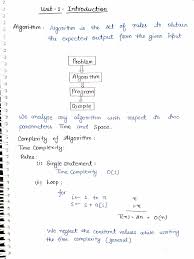 Unit-1 Introduction
Algorithm: Algorithm is the set of rules to obtain
the expected output from the given input
Problem
Algorithm
Program
We analyse any algorithm with respect to two
parameters Time and Space.
Complexity of Algorithm:
Time Complexity:
Rules:
(i) Single Statement:
Time Complexity O(1)
(ii) Loop:
1 to n
n
T(n) = 2n = O(n)
We neglect the constant values while writing
the time complexity (general)